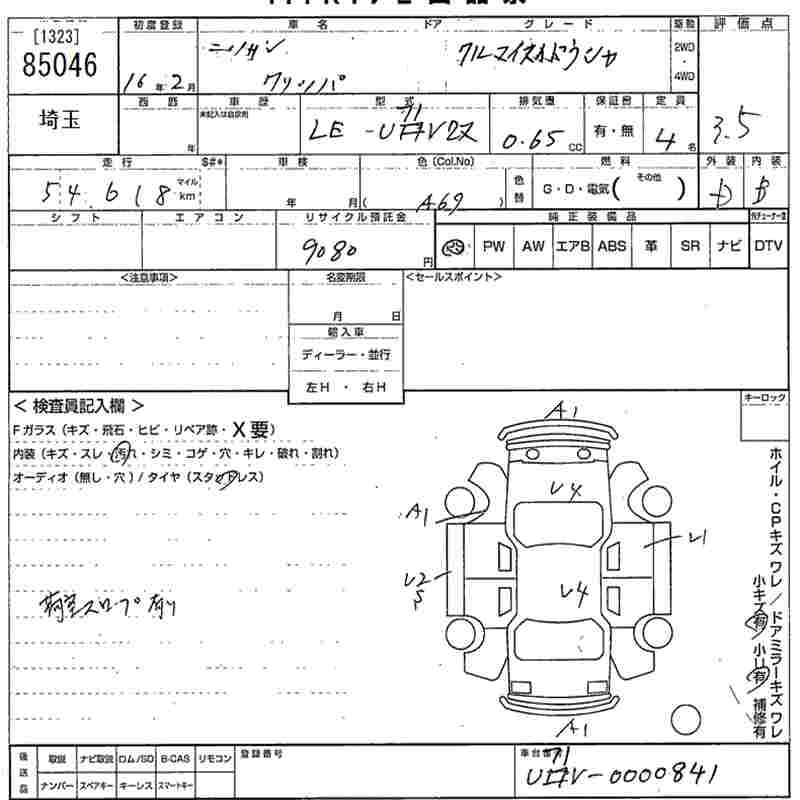 [1323]
85046
初度登録
車名
ドア
グレード
駆動
評価点
ニッサン
クリッパ
クルマイスイドウシャ
2WD
・
4WD
16年2月
埼玉
西暦
年
車歴
未記入は自家用
型式
LE-U71Vカヌ
排気量
0.65 CC
保証書
有・無
定員
4名
3.5
走行
$#*
54618
マイル
km
車検
年 月
色(Col.No)
( A69 )
色替
燃料
G・D・電気( その他 )
外装
内装
D
B
シフト
エアコン
リサイクル預託金
9080円
純正装備品
PW
AW
エアB
ABS
革
SR
ナビ
DTV
<注意事項>
名変期限
月 日
輸入車
ディーラー・並行
左H・右H
<セールスポイント>
<検査員記入欄>
Fガラス(キズ・飛石・ヒビ・リペア跡・X要)
内装(キズ・スレ・汚れ・シミ・コゲ・穴・キレ・破れ・割れ)
オーディオ(無し・穴)/タイヤ(スタッドレス)
荷室スロープ有り
キーロック
A1
U4
A1
U1
U2
S
U4
A1
ホイル・CPキズ ワレ/ドアミラーキズ ワレ
小キズ有 小U有 補修有
後送品
取説
ナビ取説
ロム/SD
B-CAS
リモコン
ナンバー
スペアキー
キーレス
スマートキー
登録番号
車台番号
U71V-0000841